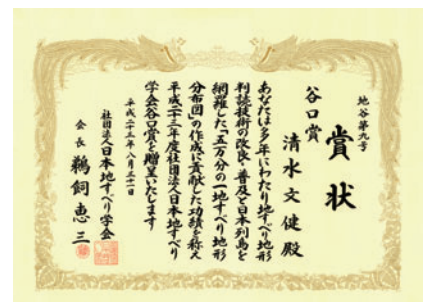 地谷第九号
賞状
谷口賞
清水文健殿
あなたは多年にわたり地すべり地形
判読技術の改良・普及と日本列島を
網羅した「五万分の一地すべり地形
分布図」の作成に貢献した功績を称え
平成二十三年度社団法人日本地すべり
学会谷口賞を贈呈いたします
平成二十三年八月三十一日
社団法人日本地すべり学会
会長 鵜飼恵三